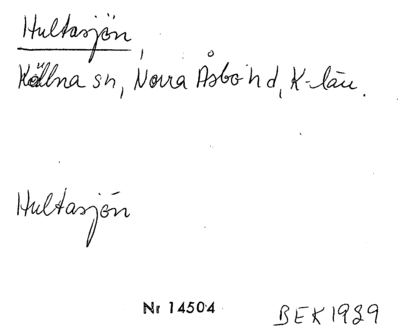 Hultasjön,
Källna sn, Norra Åsbo hd, K-län.
Hultasjön
Nr 14504
BEK 1989